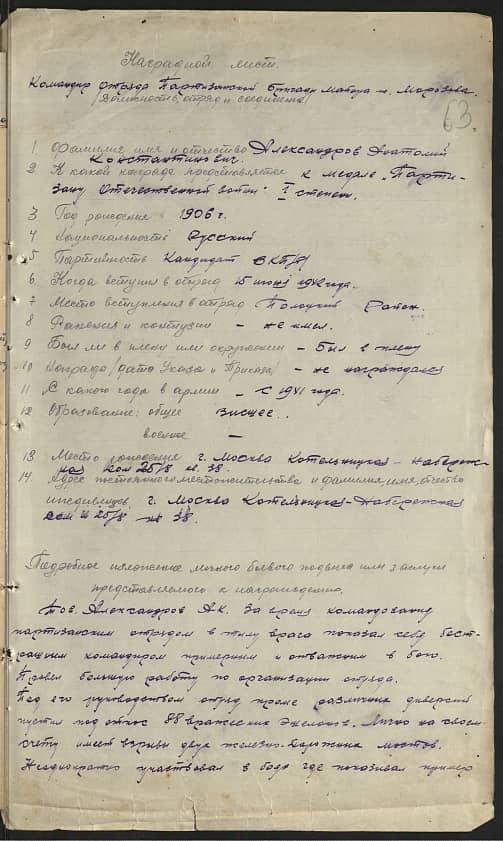 Наградной лист.
Командир отряда Партизанской бригады майора т. Морозова.
/Должность, отряд и соединение/
63.
1 Фамилия имя и отчество Александров Анатолий
Константинович.
2. К какой награде представляется к медале „Парти-
зану Отечественной войны" I степени.
3 Год рождения 1906 г.
4 Национальность Русский
5 Партийность Кандидат ВКП/б/
6 Когда вступил в отряд 15 июня 1942 года.
7 Место вступления в отряд Полоцкий район.
8 Ранения и контузии – не имел.
9 Был ли в плену или окружении – Был в плену
10 Награды /дата Указа и Приказа/ – не награждался
11 С какого года в армии – с 1941 года.
12 Образование: общее высшее.
военное –
13 Место рождения г. Москва Котельницкая – набереж-
ная дом 25/8 кв. 38.
14. Адрес постоянного местожительства и фамилия, имя, отчество
иждивенцев г. Москва Котельницкая – Набережная
дом № 25/8 кв 38.
Подробное изложение личного боевого подвига или заслуги
представляемого к награждению.
Тов. Александров А.К. За время командования
партизанским отрядом в тылу врага показал себя бест-
рашным командиром примерным и отважным в бою.
Провел большую работу по организации отряда.
Под его руководством отряд кроме различных диверсий
пустил под откос 88 вражеских эшелонов. Лично на своем
счету имеет взрывы двух железно-дорожных мостов.
Неоднократно участвовал в боях где показывал пример